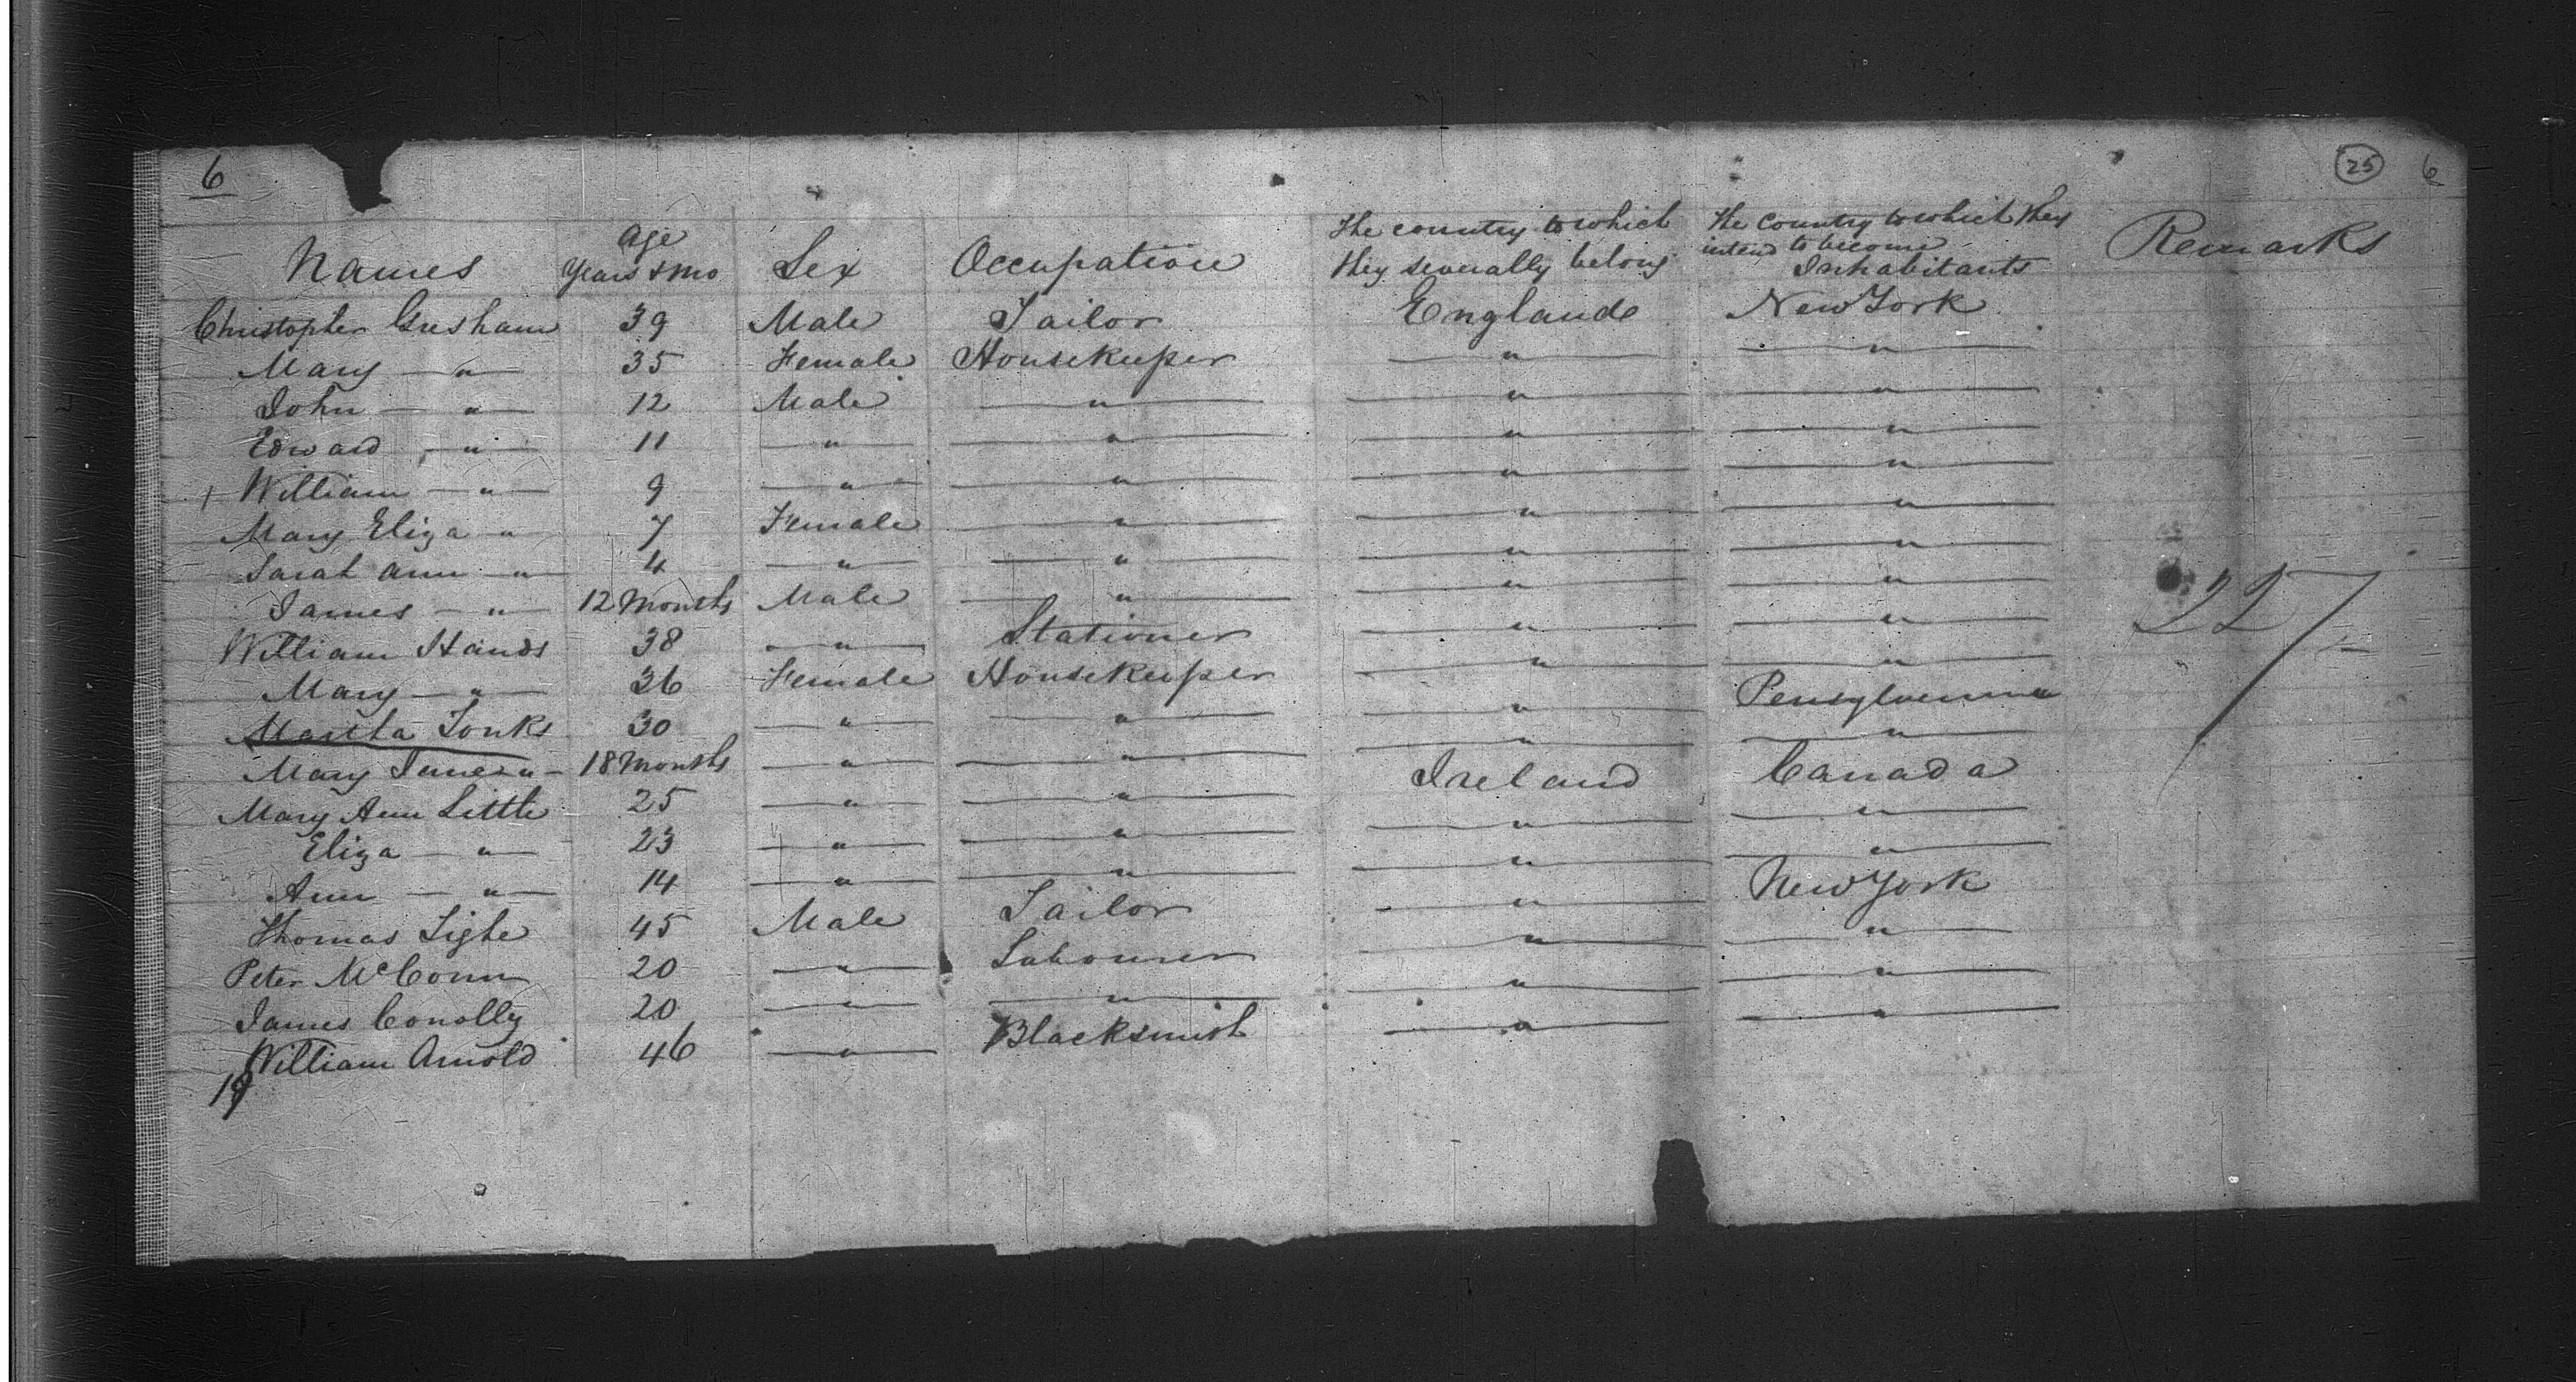 6 25 6
Names Age Years & Mo Sex Occupation The country to which they severally belong The Country to which they intend to become Inhabitants Remarks
Christopher Gresham 39 Male Tailor England New York
Mary — " — 35 Female Housekeeper — " — — " —
John — " — 12 Male — " — — " — — " —
Edward — " — 11 — " — — " — — " — — " —
William — " — 9 — " — — " — — " — — " —
Mary Eliza " 7 Female — " — — " — — " —
Sarah Ann — " — 4 — " — — " — — " — — " —
James — " — 12 Months Male — " — — " — — " —
William Hands 38 — " — Stationer — " — — " —
Mary — " — 36 Female Housekeeper — " — — " —
Martha Tonks 30 — " — — " — — " — Pensylvennia
Mary Jane " — 18 Months — " — — " — — " — — " —
Mary Ann Little 25 — " — — " — Ireland Canada
Eliza — " — 23 — " — — " — — " — — " —
Ann — " — 14 — " — — " — — " — — " —
Thomas Tighe 45 Male Tailor — " — New York
Peter McConn 20 — " — Labourer — " — — " —
James Conolly 20 — " — — " — — " — — " —
William Arnold 46 — " — Blacksmith — " — — " —
19
227